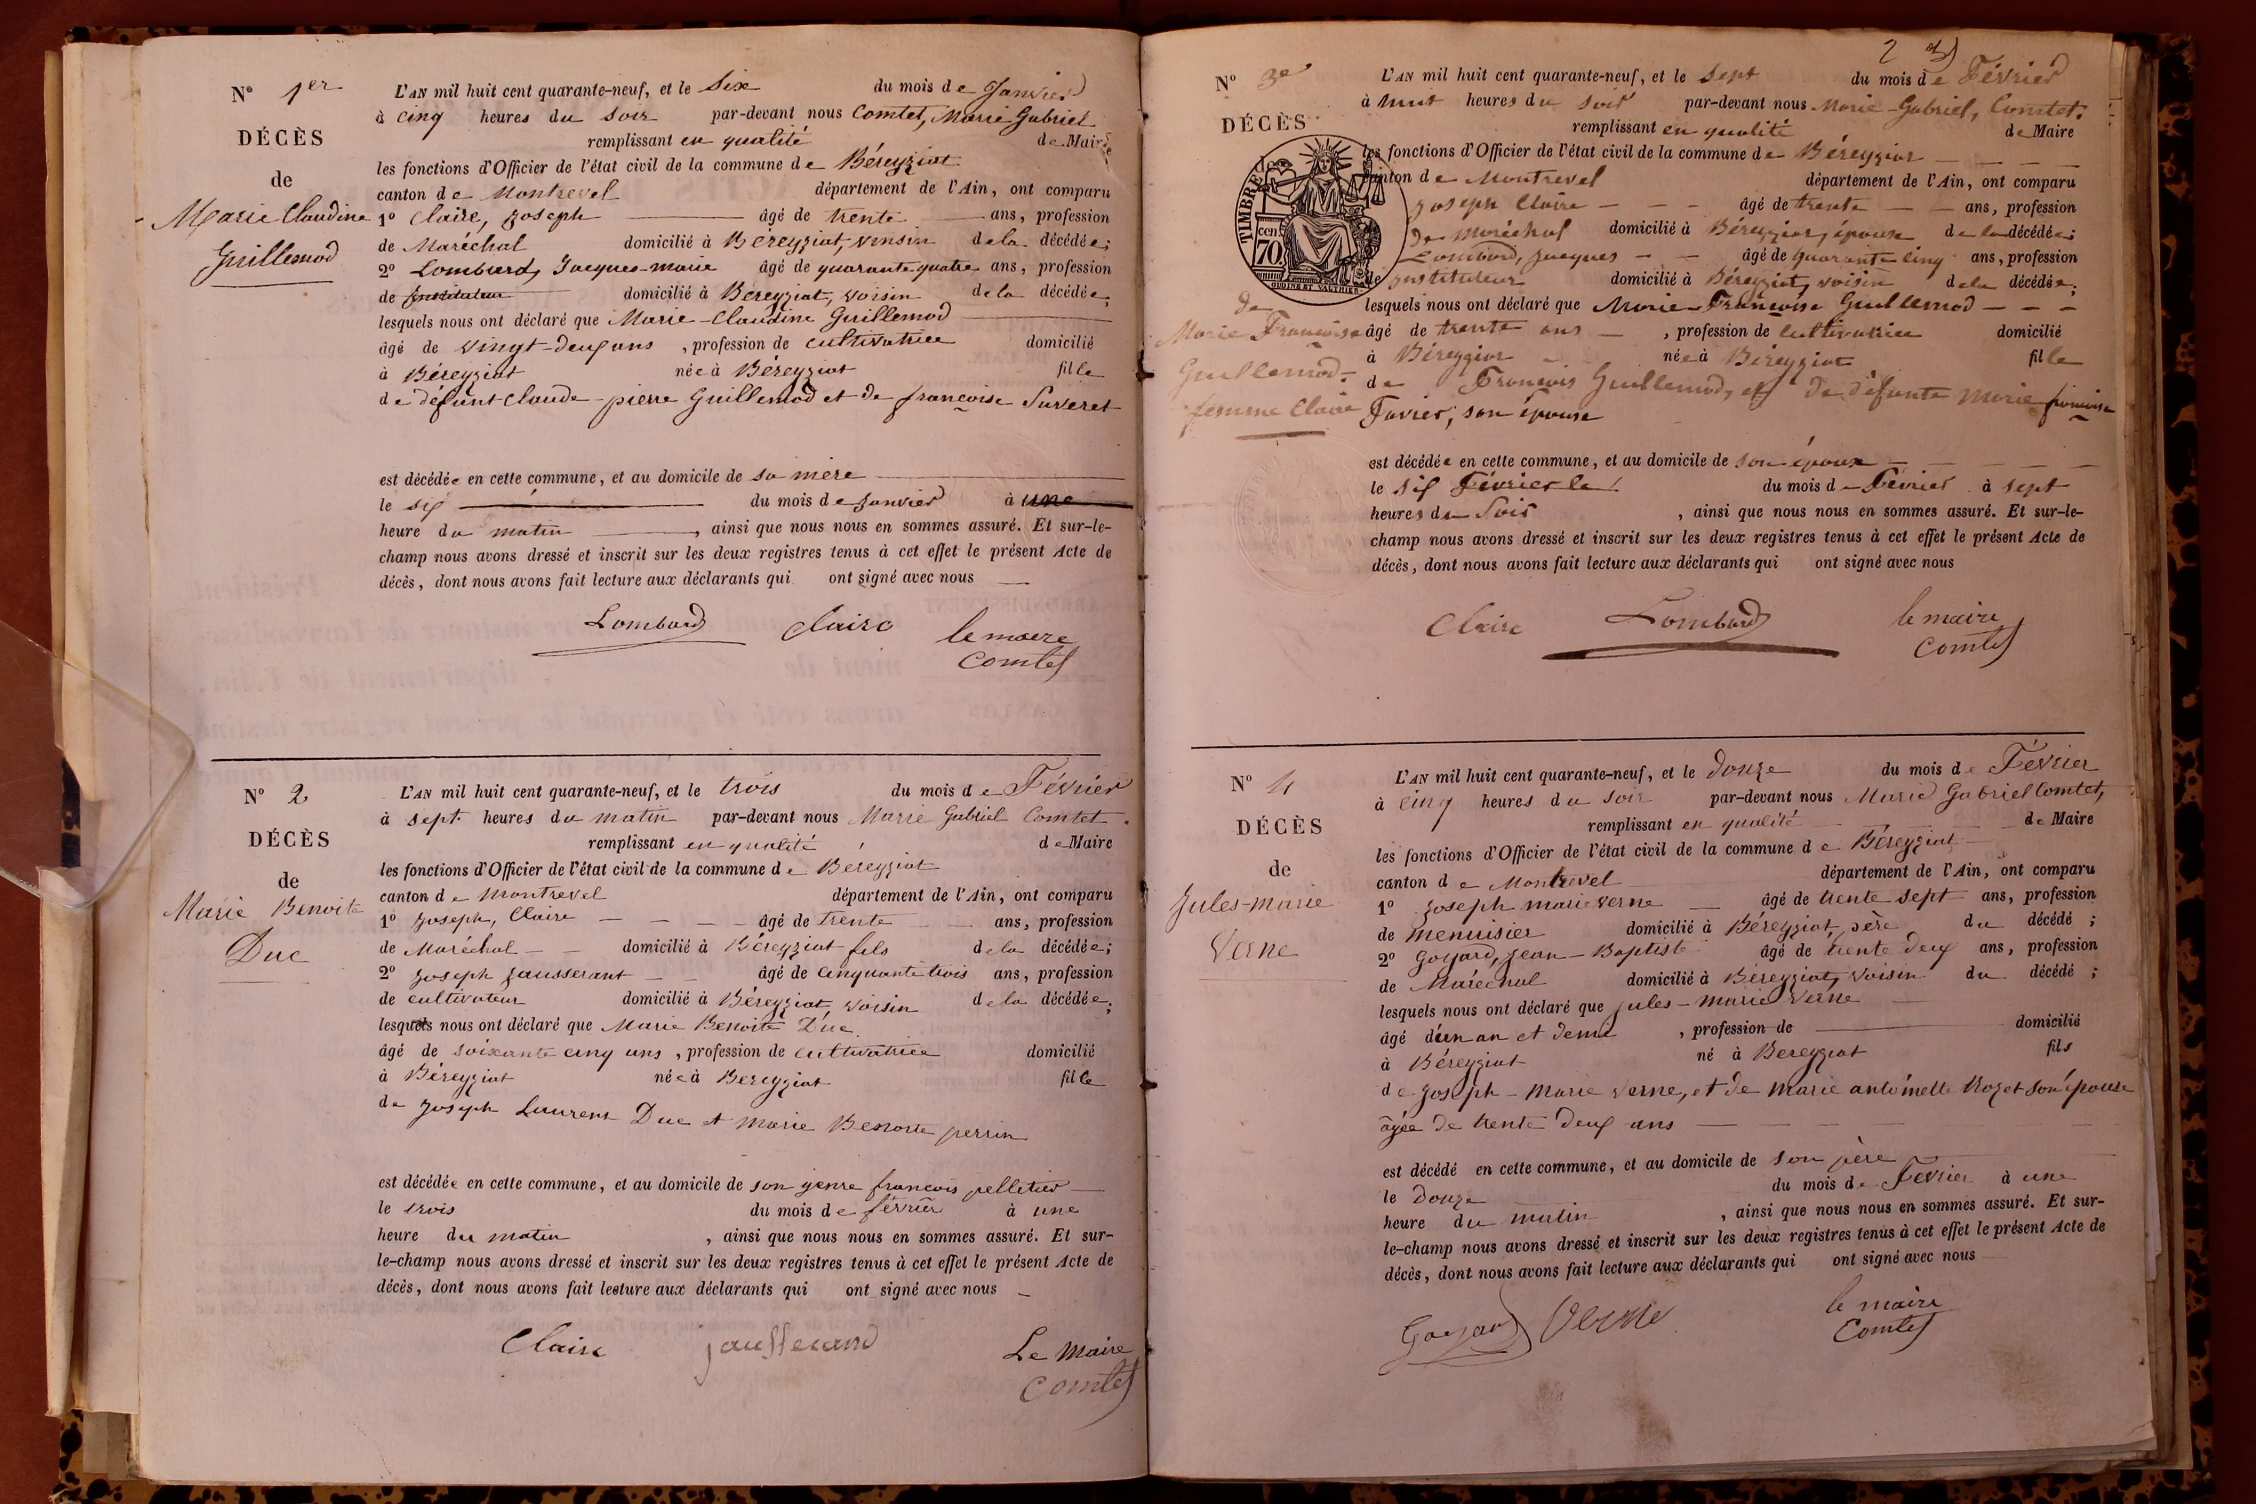 N° 1er
DÉCÈS
de
Marie Claudine
Guillemod
L'AN mil huit cent quarante-neuf, et le Six du mois de Janvier
à cinq heures du Soir par-devant nous Comtet, Marie Gabriel
remplissant en qualité de Maire
les fonctions d'Officier de l'état civil de la commune de Béreyziat
canton de Montrevel département de l'Ain, ont comparu
1° Claire, Joseph âgé de trente ans, profession
de Maréchal domicilié à Béreyziat, voisin de la décédée;
2° Lombard, Jacques-marie âgé de quarante quatre ans, profession
de Instituteur domicilié à Béreyziat, voisin de la décédée;
lesquels nous ont déclaré que Marie-Claudine Guillemod
âgé de vingt-deux ans, profession de cultivatrice domicilié
à Béreyziat née à Béreyziat fille
de défunt Claude-pierre Guillemod et de françoise Suveret
est décédée en cette commune, et au domicile de sa mère
le six du mois de Janvier à une
heure du matin, ainsi que nous nous en sommes assuré. Et sur-le-
champ nous avons dressé et inscrit sur les deux registres tenus à cet effet le présent Acte de
décès, dont nous avons fait lecture aux déclarants qui ont signé avec nous
Lombard Claire le maire
Comtet
N° 2
DÉCÈS
de
Marie Benoite
Duc
L'AN mil huit cent quarante-neuf, et le trois du mois de Février
à sept heures du matin par-devant nous Marie Gabriel Comtet.
remplissant en qualité de Maire
les fonctions d'Officier de l'état civil de la commune de Béreyziat
canton de Montrevel département de l'Ain, ont comparu
1° Joseph, Claire âgé de trente ans, profession
de Maréchal domicilié à Béreyziat fils de la décédée;
2° Joseph Jausserant âgé de cinquante trois ans, profession
de cultivateur domicilié à Béreyziat, voisin de la décédée;
lesquels nous ont déclaré que Marie Benoite Duc
âgé de soixante cinq ans, profession de cultivatrice domicilié
à Béreyziat née à Bereyziat fille
de Joseph Laurent Duc et Marie Benoite perrin
est décédée en cette commune, et au domicile de son genre françois pelletier
le trois du mois de février à une
heure du matin, ainsi que nous nous en sommes assuré. Et sur-
le-champ nous avons dressé et inscrit sur les deux registres tenus à cet effet le présent Acte de
décès, dont nous avons fait lecture aux déclarants qui ont signé avec nous
Claire jausserand Le Maire
Comtet
2
N° 3e
DÉCÈS
TIMBRE de
cen
70
OUDINE ET VAUTHIER
de
Marie Françoise
Guillemod
femme Claire
L'AN mil huit cent quarante-neuf, et le Sept du mois de Février
à huit heures du soir par-devant nous Marie-Gabriel, Comtet.
remplissant en qualité de Maire
les fonctions d'Officier de l'état civil de la commune de Béreyziat
canton de Montrevel département de l'Ain, ont comparu
Joseph Claire âgé de trente ans, profession
de maréchal domicilié à Béreyziat, époux de la décédée;
Lombard, Jacques âgé de quarante cinq ans, profession
de Instituteur domicilié à Béreyziat, voisin de la décédée;
lesquels nous ont déclaré que Marie-Françoise Guillemod
âgé de trente ans, profession de cultivatrice domicilié
à Béreyziat née à Béreyziat fille
de François Guillemod, et de défunte Marie françoise
Favier, son épouse
est décédée en cette commune, et au domicile de son époux
le six Février le du mois de Février à sept
heures du Soir, ainsi que nous nous en sommes assuré. Et sur-le-
champ nous avons dressé et inscrit sur les deux registres tenus à cet effet le présent Acte de
décès, dont nous avons fait lecture aux déclarants qui ont signé avec nous
Claire Lombard le maire
Comtet
N° 4
DÉCÈS
de
Jules-marie
Verne
L'AN mil huit cent quarante-neuf, et le douze du mois de Février
à cinq heures du soir par-devant nous Marie Gabriel Comtet,
remplissant en qualité de Maire
les fonctions d'Officier de l'état civil de la commune de Béreyziat
canton de Montrevel département de l'Ain, ont comparu
1° Joseph marie verne âgé de trente sept ans, profession
de menuisier domicilié à Béreyziat, père du décédé;
2° Goyard, Jean-Baptiste âgé de trente deux ans, profession
de Maréchal domicilié à Béreyziat, voisin du décédé;
lesquels nous ont déclaré que jules-marie verne
âgé d'un an et demi, profession de domicilié
à Béreyziat né à Bereyziat fils
de Joseph-Marie verne, et de Marie antoinette Rozet son épouse
âgée de trente deux ans
est décédé en cette commune, et au domicile de son père
le douze du mois de Février à une
heure du matin, ainsi que nous nous en sommes assuré. Et sur-
le-champ nous avons dressé et inscrit sur les deux registres tenus à cet effet le présent Acte de
décès, dont nous avons fait lecture aux déclarants qui ont signé avec nous
Goyard Verne le maire
Comtet